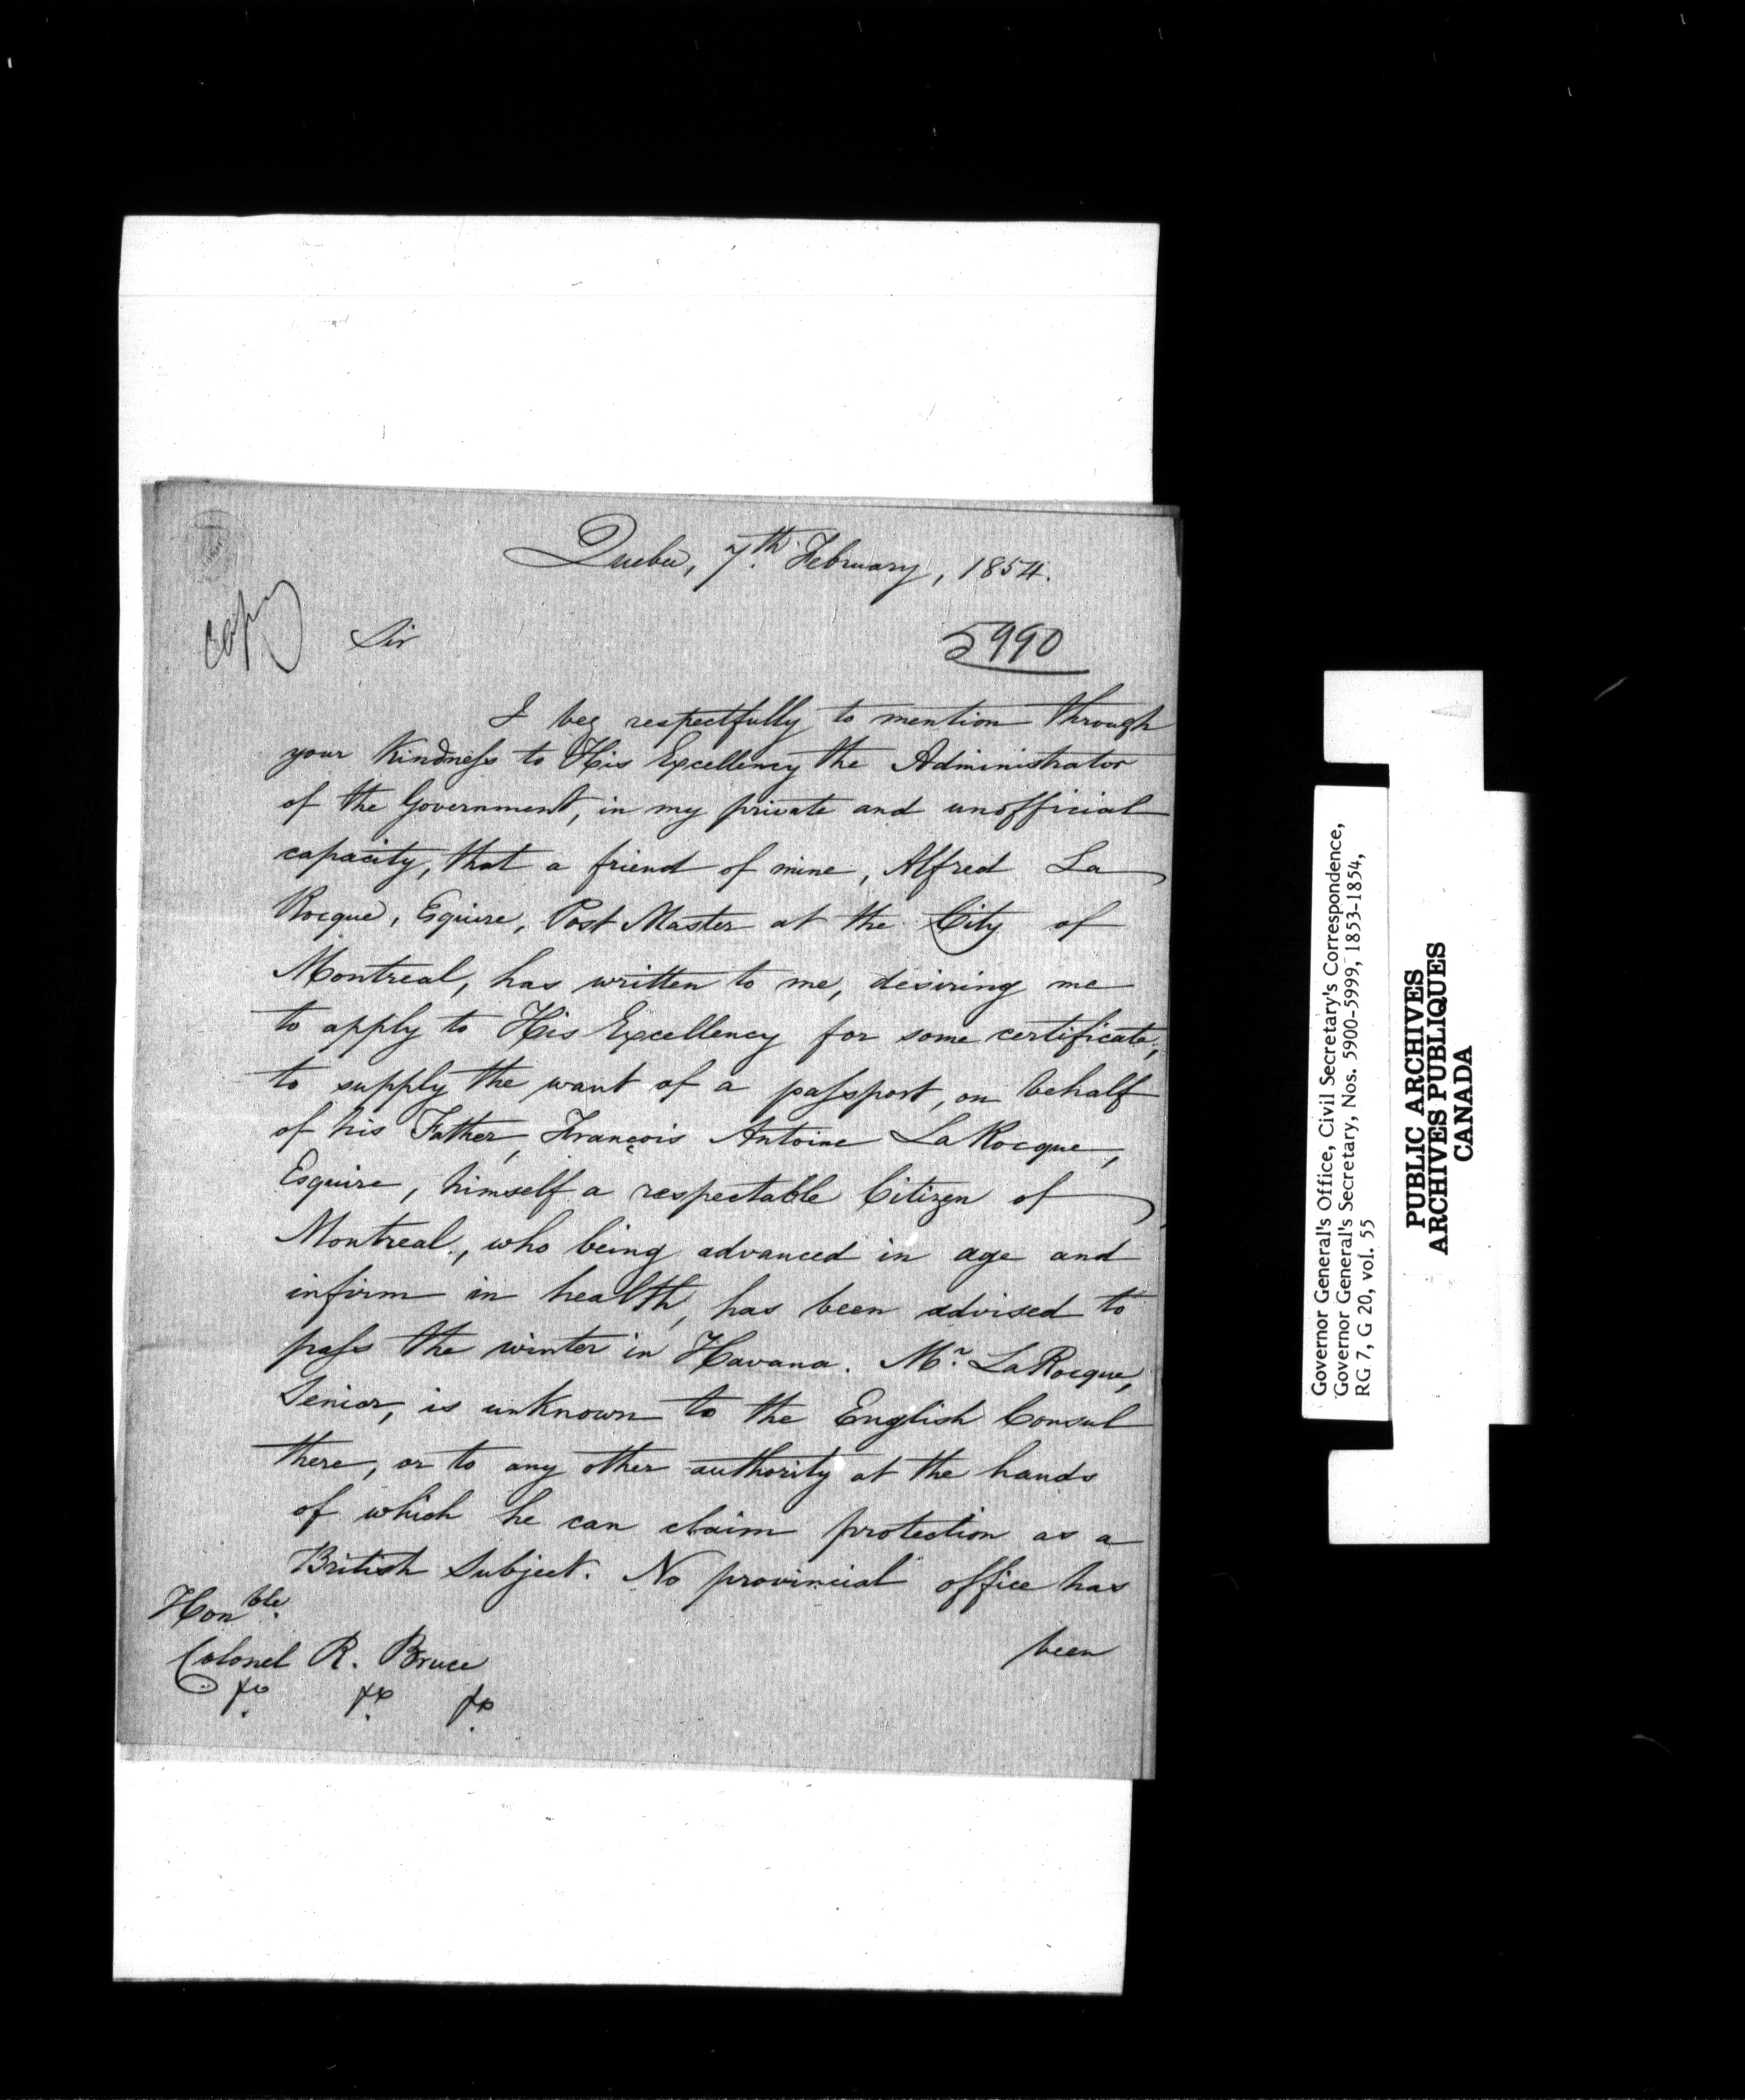 Quebec, 7th. February, 1854.
Copy
Sir
5990
I beg respectfully to mention through
your Kindness to His Excellency the Administrator
of the Government, in my private and unofficial
capacity, that a friend of mine, Alfred La
Rocque, Esquire, Post Master at the City of
Montreal, has written to me, desiring me
to apply to His Excellency for some certificate,
to supply the want of a passport, on behalf
of his Father, François Antoine LaRocque,
Esquire, himself a respectable Citizen of
Montreal, who being advanced in age and
infirm in health, has been advised to
pass the winter in Havana. Mr. LaRocque,
Senior, is unKnown to the English Consul
there, or to any other authority at the hands
of which he can claim protection as a
British Subject. No provincial office has
been
Honble.
Colonel R. Bruce
&c. &c. &c.
Governor General's Office, Civil Secretary's Correspondence,
Governor General's Secretary, Nos. 5900-5999, 1853-1854,
RG 7, G 20, vol. 55
PUBLIC ARCHIVES
ARCHIVES PUBLIQUES
CANADA